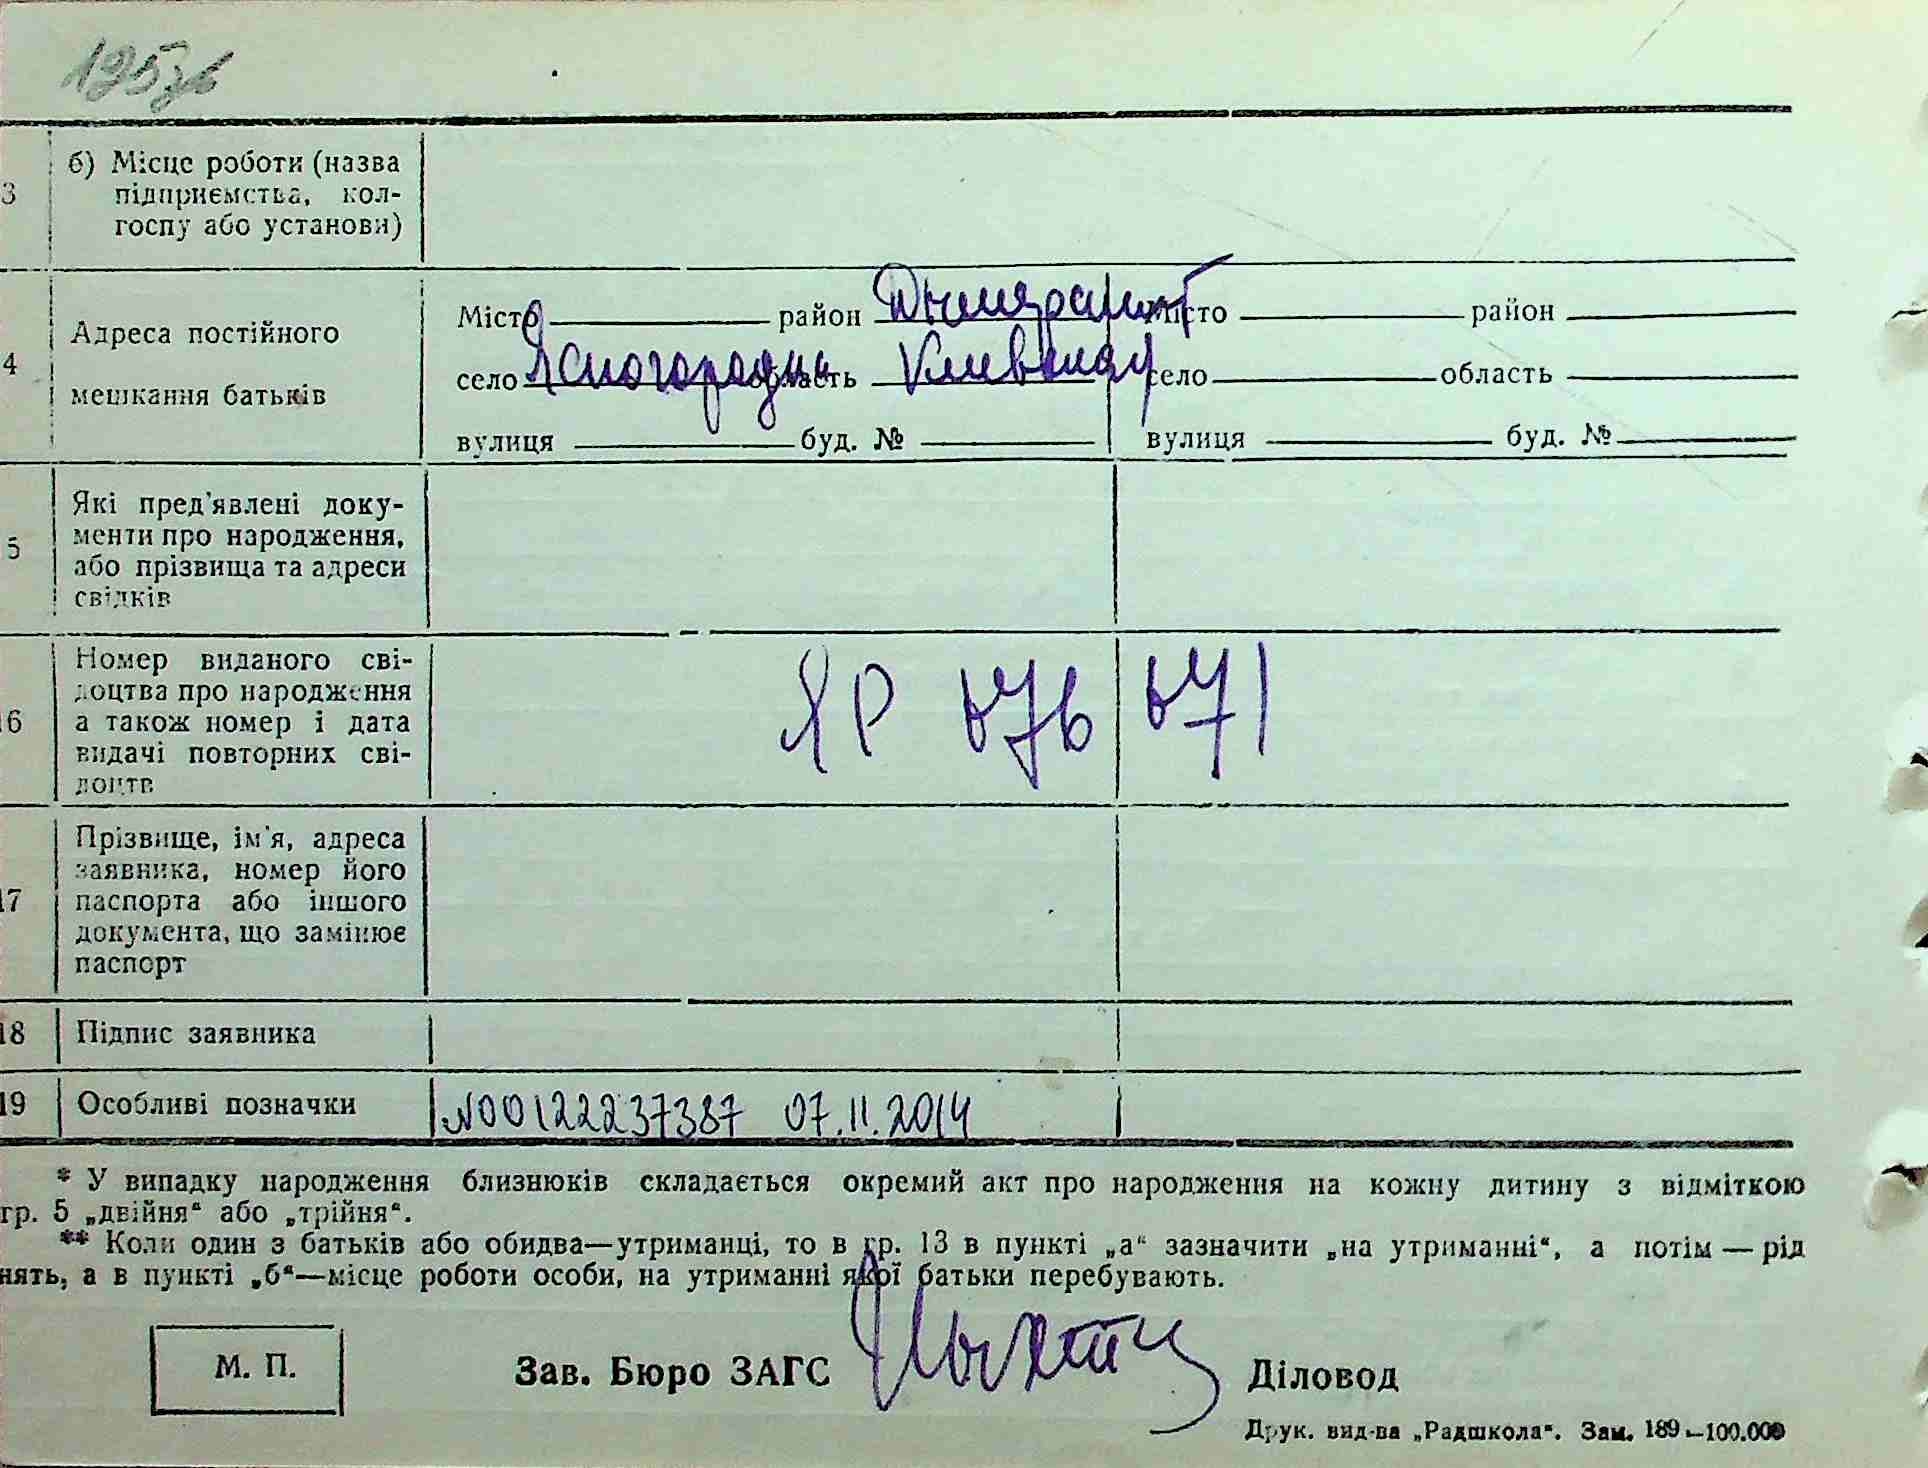 125зв
3 б) Місце роботи (назва
підприємства, кол-
госпу або установи)
4 Адреса постійного
мешкання батьків
Місто район Дымерский Місто район
село Ясногородка область Киевская село область
вулиця буд. № вулиця буд. №
5 Які пред'явлені доку-
менти про народження,
або прізвища та адреси
свідків
16 Номер виданого сві-
доцтва про народження
а також номер і дата
видачі повторних сві-
доцтв
ЯР
17 Прізвище, ім'я, адреса
заявника, номер його
паспорта або іншого
документа, що замінює
паспорт
18 Підпис заявника
19 Особливі позначки №00122237387 07.11.2014
* У випадку народження близнюків складається окремий акт про народження на кожну дитину з відміткою
гр. 5 „двійня“ або „трійня“.
** Коли один з батьків або обидва—утриманці, то в гр. 13 в пункті „а“ зазначити „на утриманні“, а потім — рід
нять, а в пункті „б“—місце роботи особи, на утриманні якої батьки перебувають.
М. П. Зав. Бюро ЗАГС Діловод
Друк. вид-ва „Радшкола“. Зам. 189—100.000